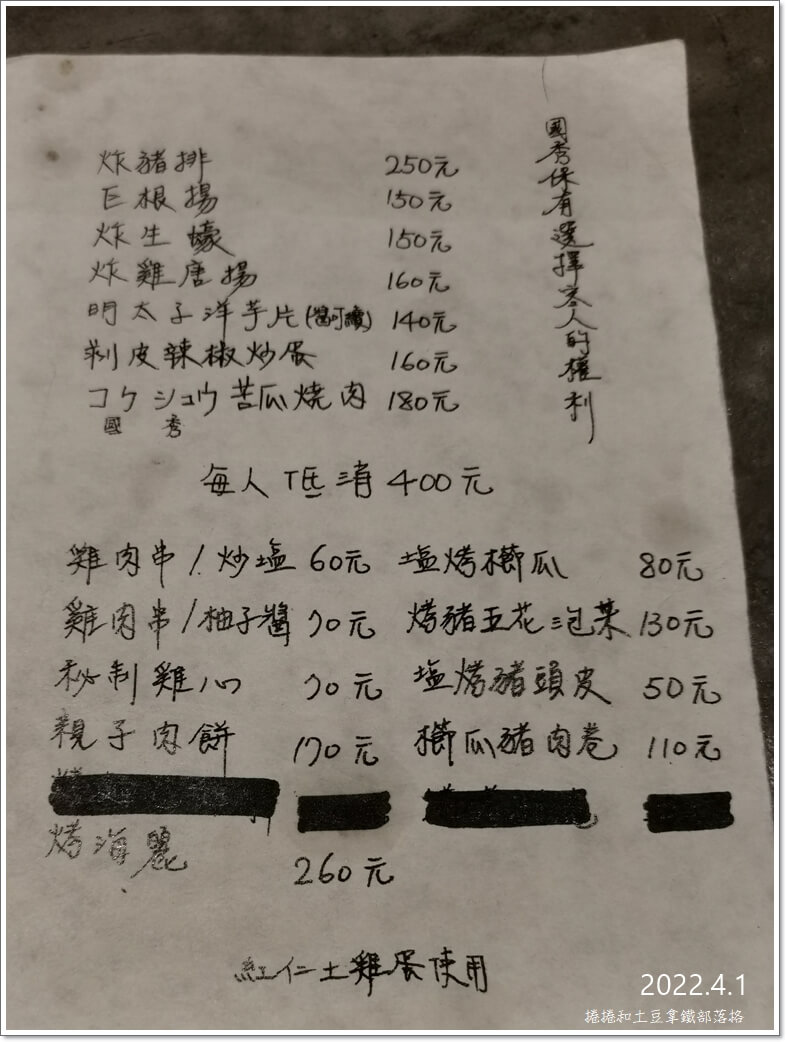 炸豬排 250元
巨根揚 150元
炸生蠔 150元
炸雞唐揚 160元
明太子洋芋片(醬可續) 140元
剝皮辣椒炒蛋 160元
コケシュウ苦瓜燒肉 180元
國秀
國秀保有選擇客人的權利
每人低消400元
雞肉串/炒塩 60元 塩烤櫛瓜 80元
雞肉串/柚子醬 70元 烤豬五花泡菜 130元
秘制雞心 70元 塩烤豬頭皮 50元
親子肉餅 170元 櫛瓜豬肉卷 110元
烤海麗 260元
紅仁土雞蛋使用
2022.4.1
捲捲和土豆拿鐵部落格